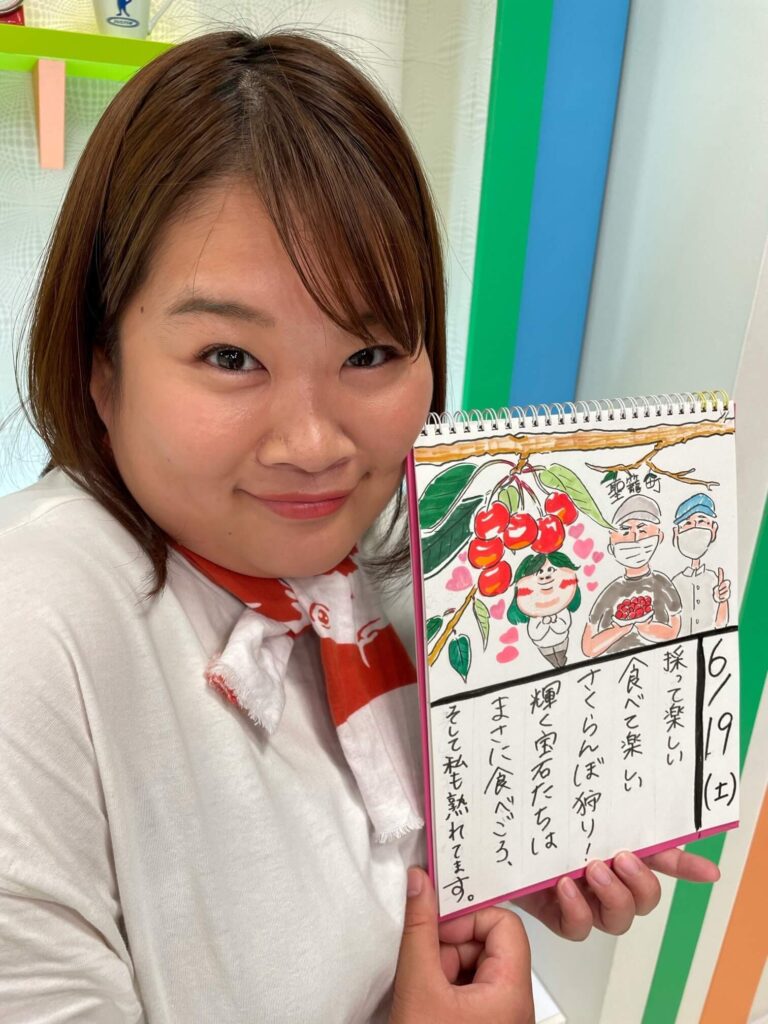 聖籠町
6/19(土)
採って楽しい
食べて楽しい
さくらんぼ狩り!
輝く宝石たちは
まさに食べごろ、
そして私も熟れてます。